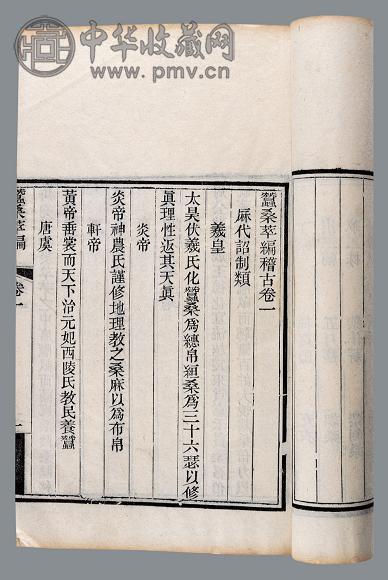 中华收藏网
www.pmv.cn
蠶桑萃編稽古卷一
厤代詔制類
羲皇
太昊伏羲氏化蠶桑爲繐帛絙桑爲三十六瑟以修
眞理性返其天眞
炎帝
炎帝神農氏謹修地理教之桑麻以爲布帛
軒帝
黃帝垂裳而天下治元妃西陵氏教民養蠶
唐虞
蠶桑萃編
卷一
一